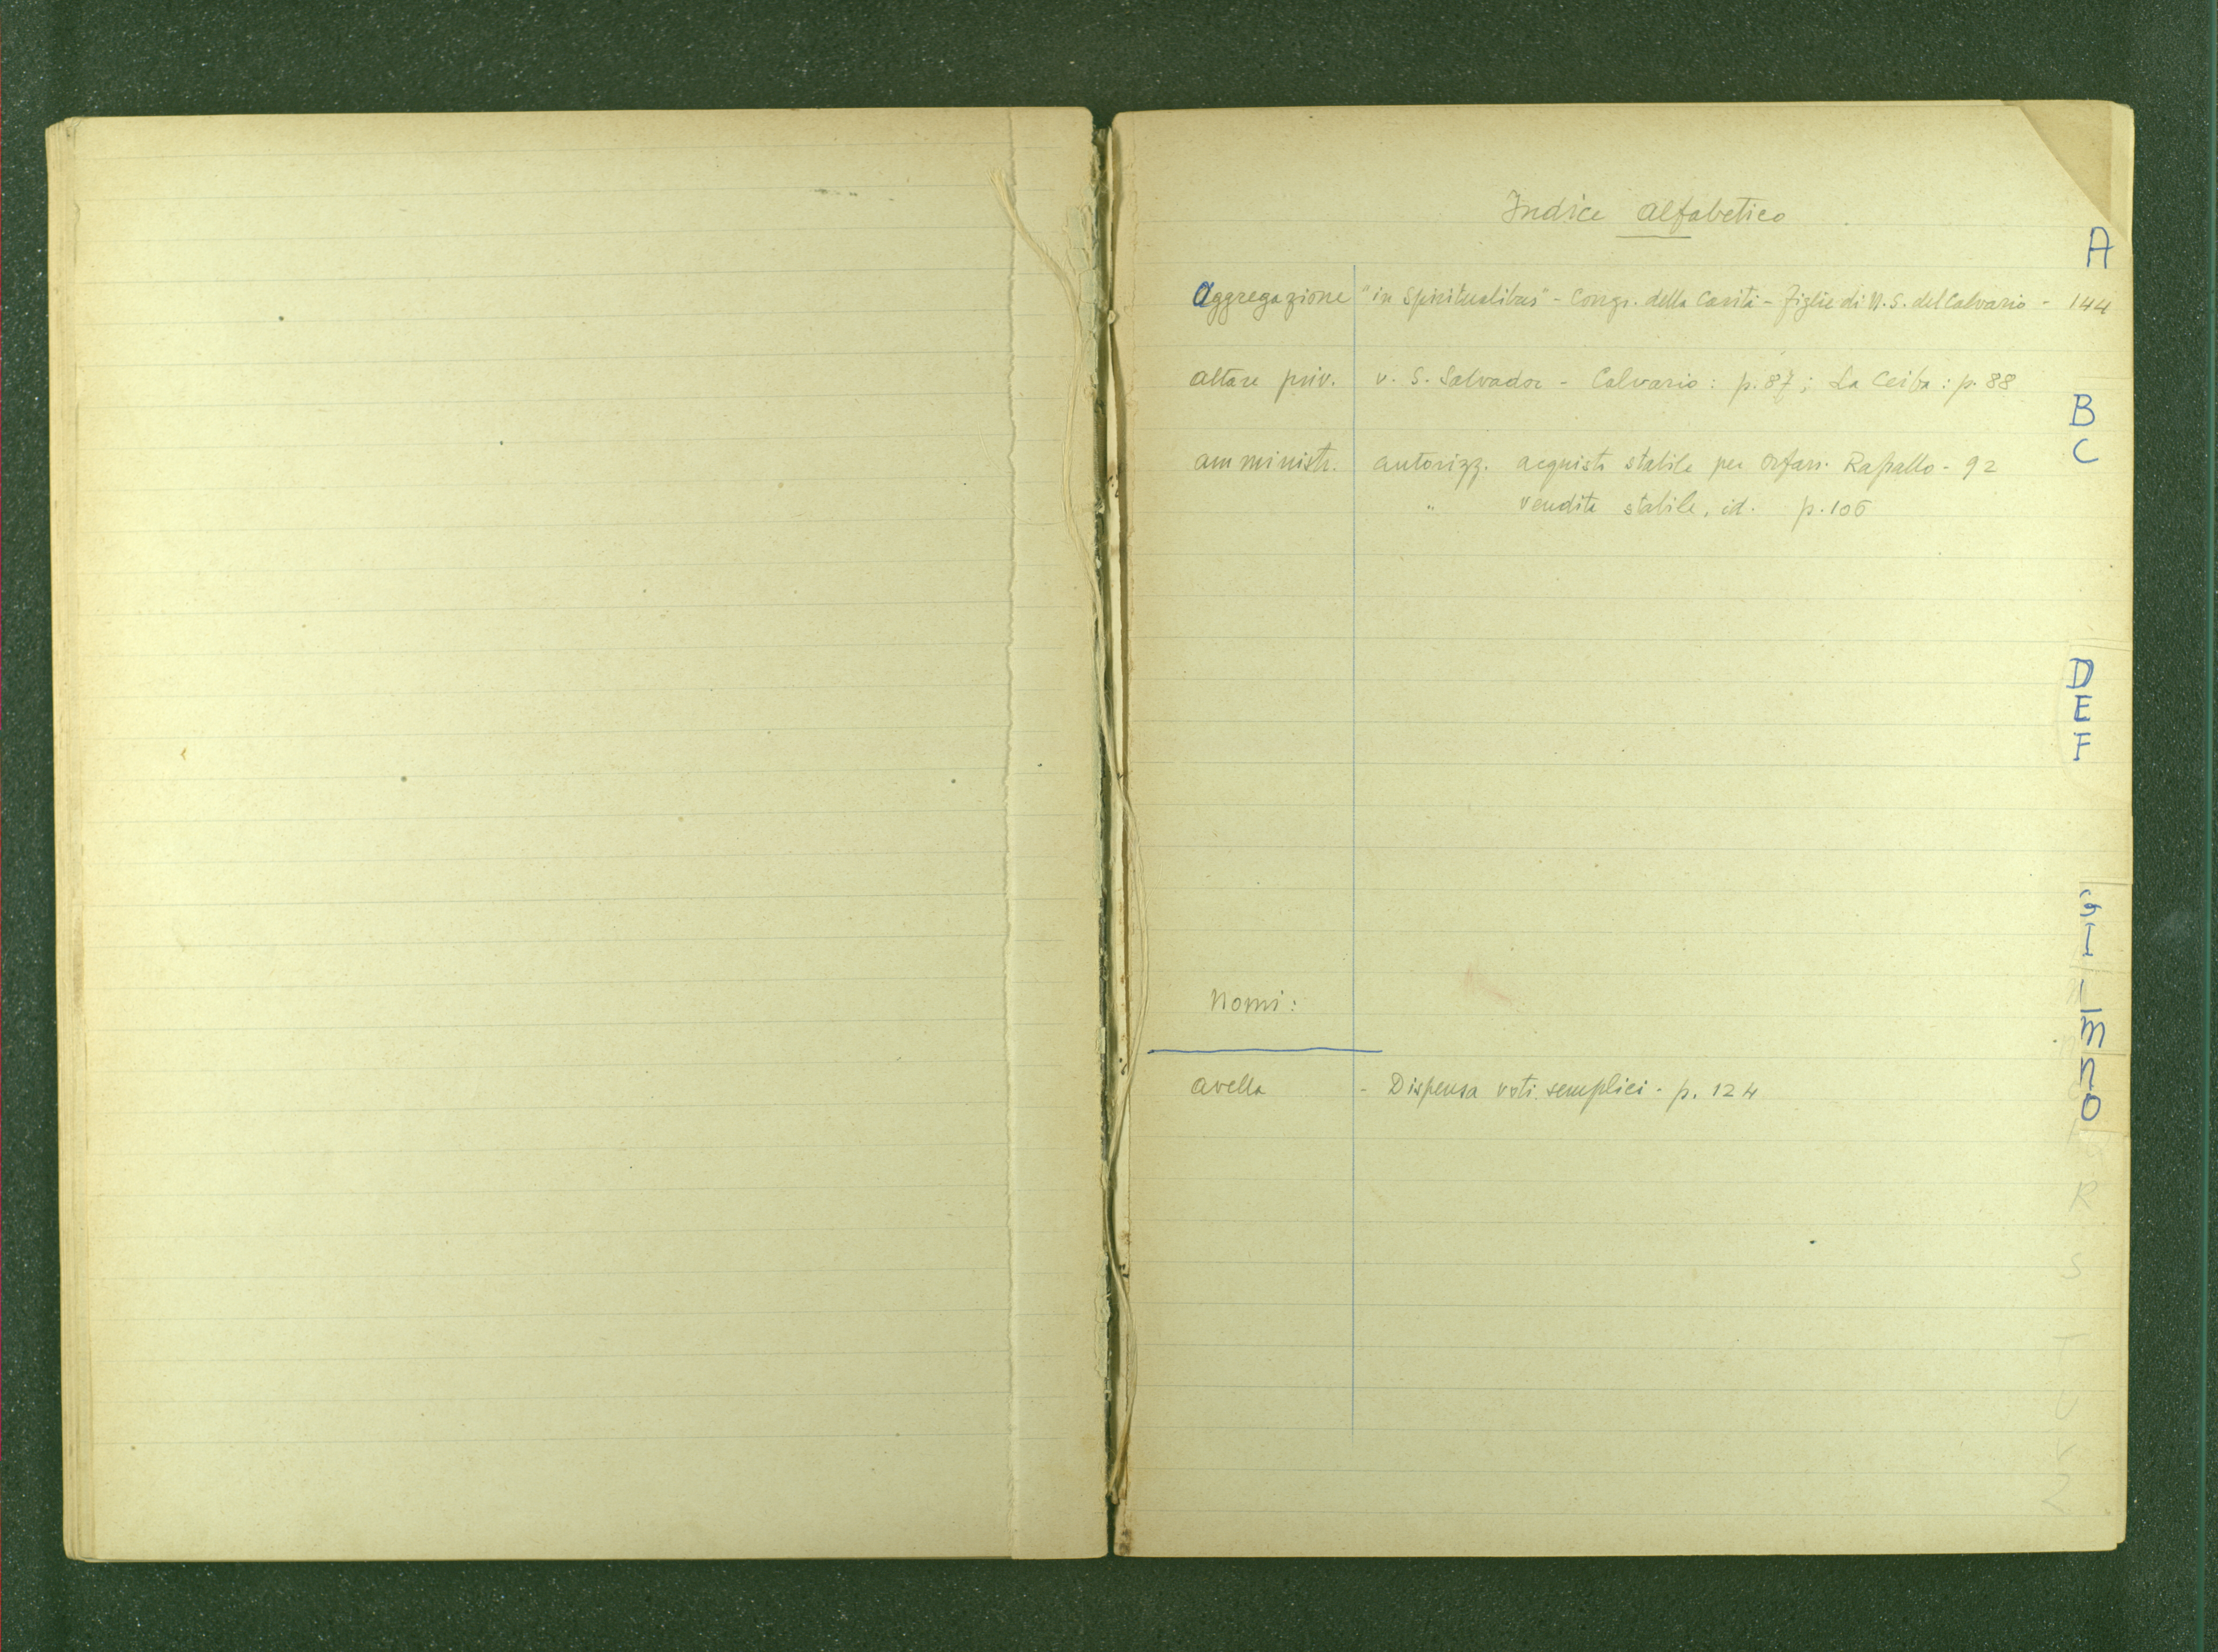 Indice alfabetico
A
Aggregazione "in Spiritualibus" - Congr. della Carità - Figlie di N.S. del Calvario - 144
altare priv. v. S. Salvador - Calvario: p. 87; La Ceiba: p. 88
B
amministr. autorizz. acquisto stabile per Orfan. Rapallo - 92
C
" vendita stabile, id. p. 106
D
E
F
G
I
L
Nomi:
M
N
avella - Dispensa voti semplici - p. 124
O
R
S
T
U
V
Z